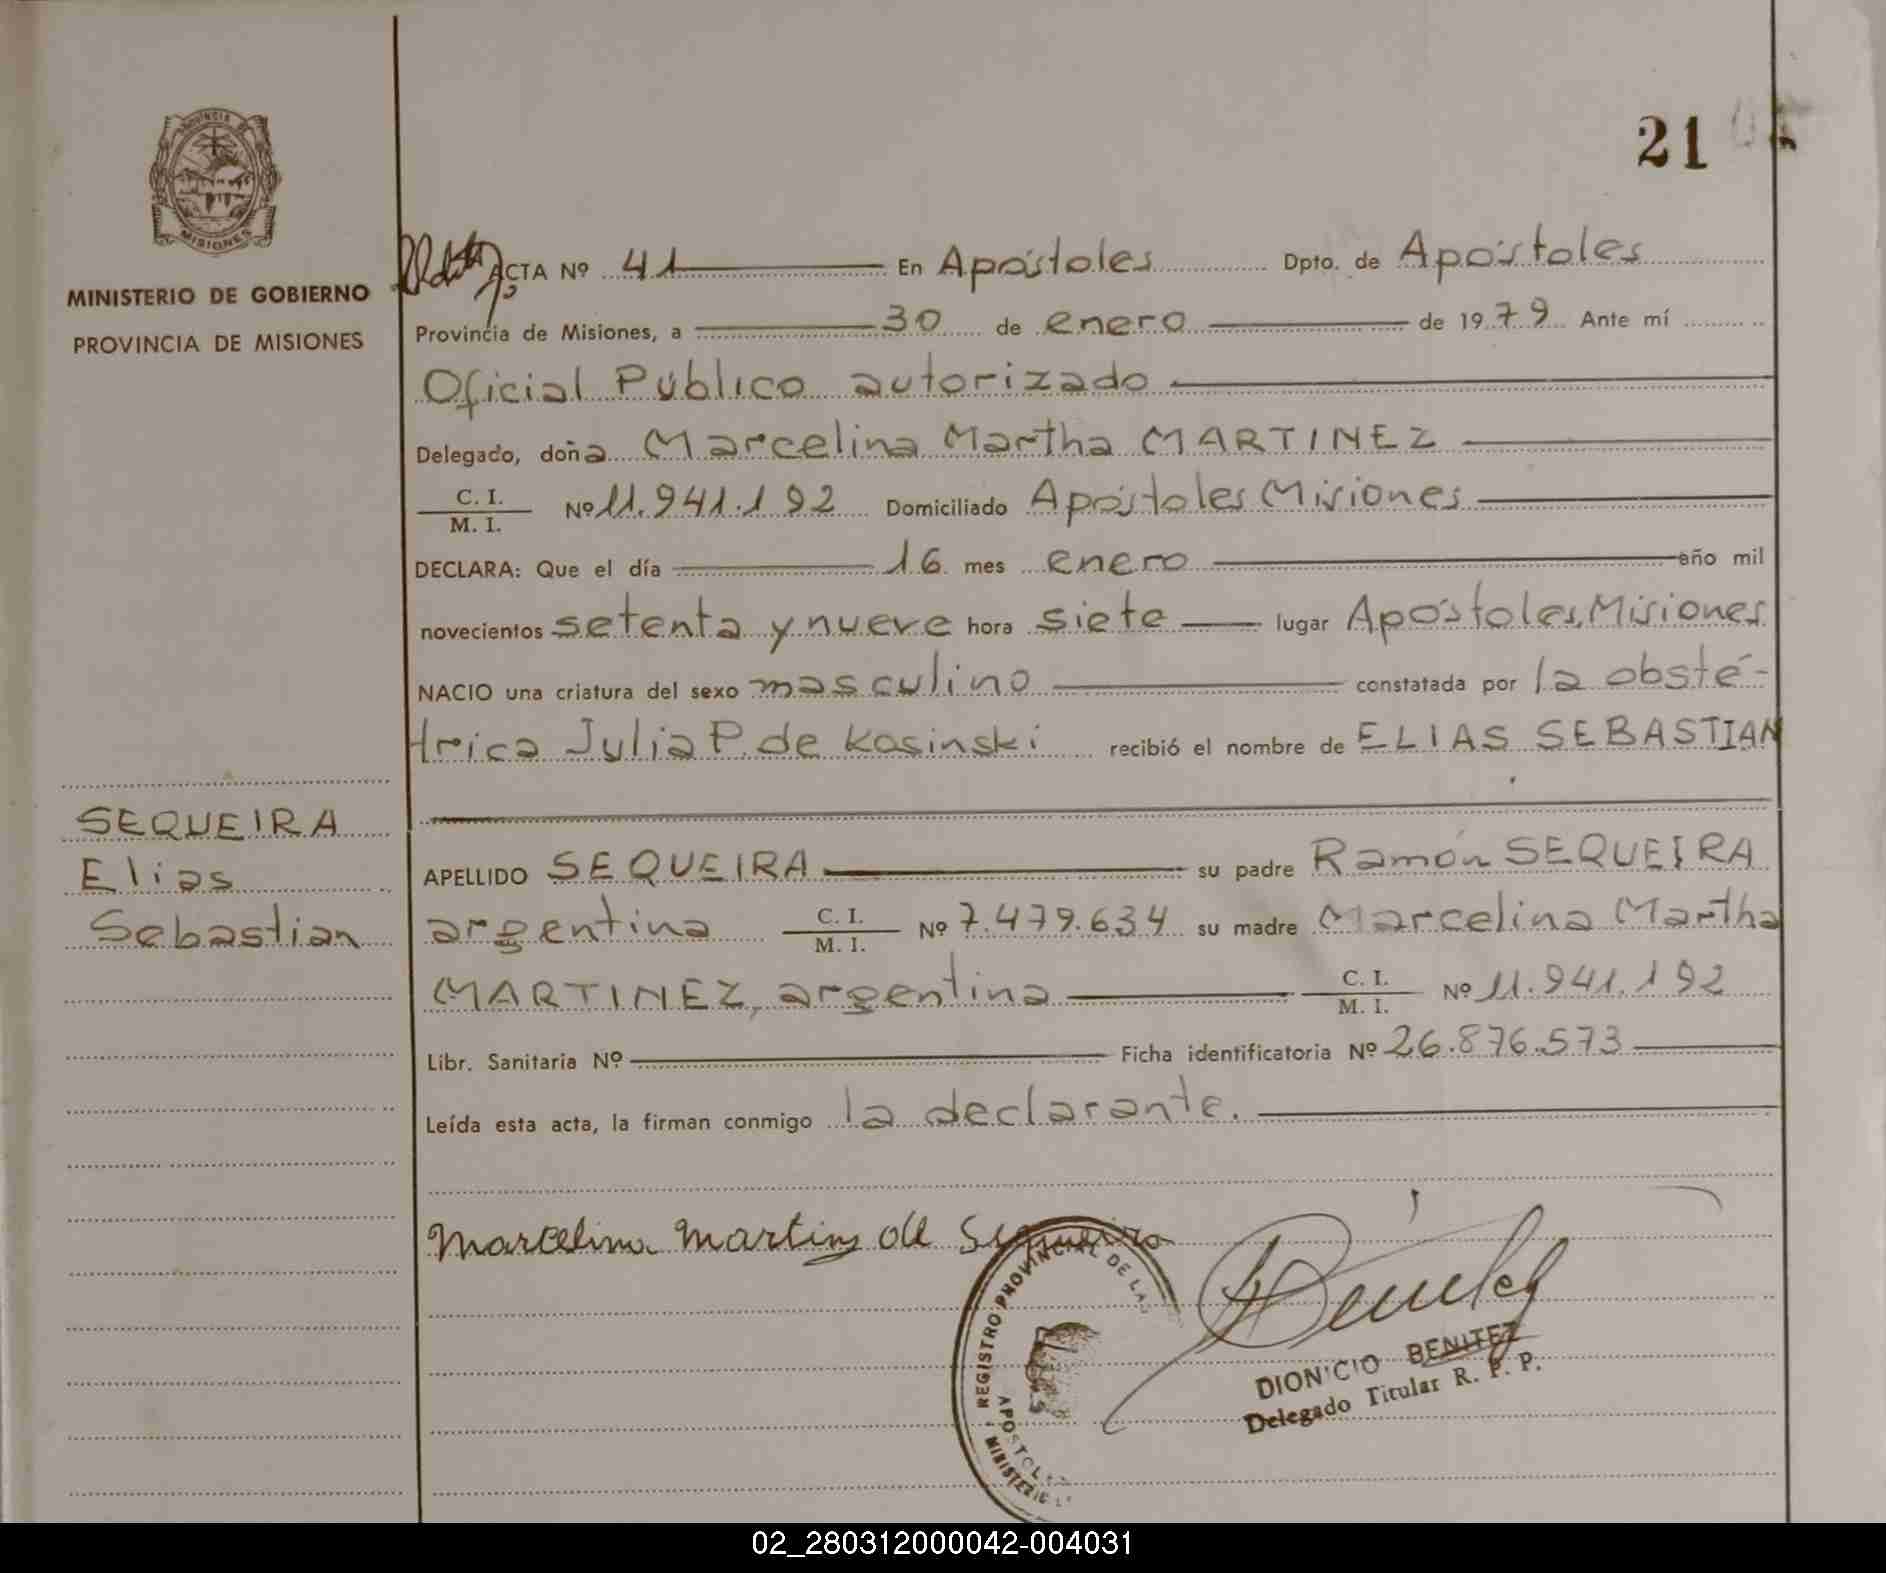 21
PROVINCIA DE
MISIONES
MINISTERIO DE GOBIERNO
PROVINCIA DE MISIONES
ACTA Nº 41 En Apóstoles Dpto. de Apóstoles
Provincia de Misiones, a 30 de enero de 1979 Ante mí
Oficial Público autorizado
Delegado, doña Marcelina Martha MARTINEZ
C. I.
M. I. Nº 11.941.192 Domiciliado Apóstoles Misiones
DECLARA: Que el día 16 mes enero año mil
novecientos setenta y nueve hora siete lugar Apóstoles, Misiones
NACIO una criatura del sexo masculino constatada por la obsté-
trica Julia P. de Kosinski recibió el nombre de ELIAS SEBASTIAN
SEQUEIRA
Elias
Sebastian
APELLIDO SEQUEIRA su padre Ramón SEQUEIRA
argentina C. I.
M. I. Nº 7.479.634 su madre Marcelina Martha
MARTINEZ, argentina C. I.
M. I. Nº 11.941.192
Libr. Sanitaria Nº Ficha identificatoria Nº 26.876.573
Leída esta acta, la firman conmigo la declarante.
Marcelina Martinz de Sequeira
REGISTRO PROVINCIAL DE LAS
APOSTOLES
MINISTERIO
DIONICIO BENITEZ
Delegado Titular R. P. P.
02_280312000042-004031